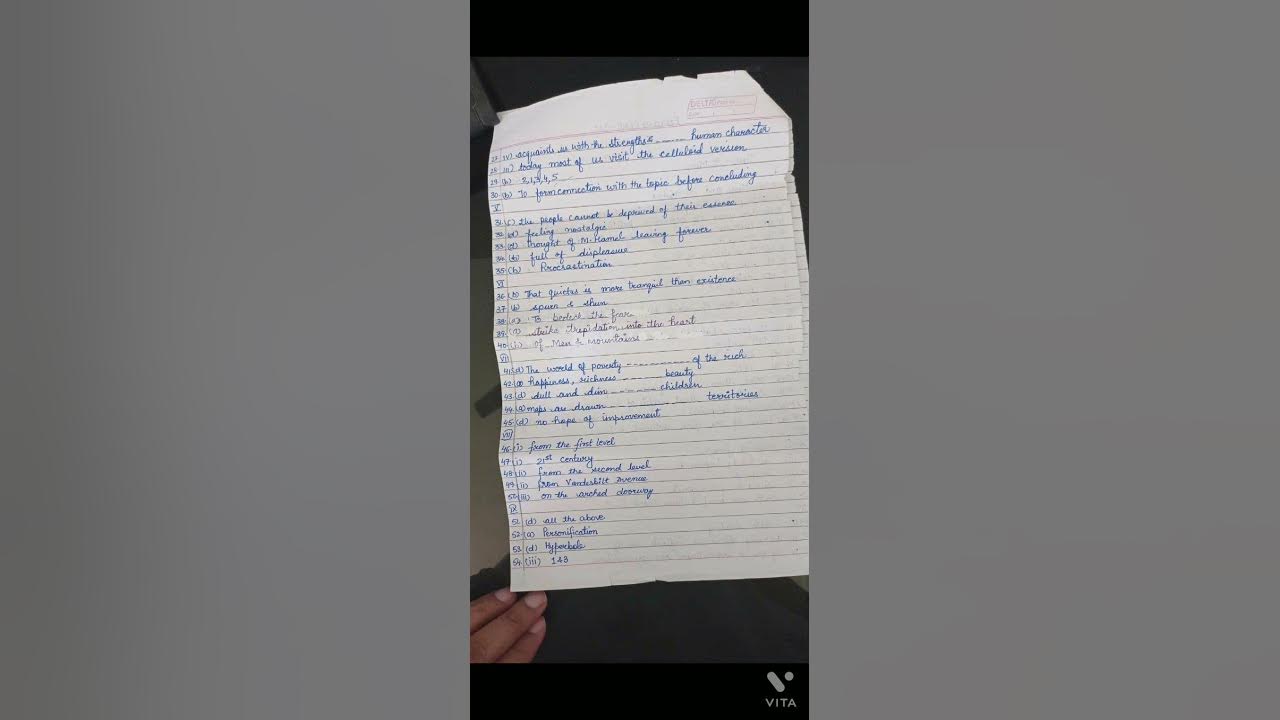 DELTA
27. iv) acquaints us with the strengths & ------ human character
28. iii) today most of us visit the celluloid version
29. (b) 2,1,3,4,5
30. (b) To form connection with the topic before concluding
V
31. (c) the people cannot be deprived of their essence
32. (d) feeling nostalgic
33. (d) thought of M. Hamel leaving forever
34. (b) full of displeasure
35. (b) Procrastination
VI
36. (b) That quietus is more tranquil than existence
37. (b) spurn & shun
38. (a) To the fear
39. (a) strike trepidation into the heart
40. (b) Of Men & mountains
VII
41. (d) The world of poverty ------------ of the rich
42. (a) happiness, richness -------- beauty
43. (d) dull and dim -------- children
44. (a) maps are drawn ------------ territories
45. (d) no hope of improvement
VIII
46. (i) from the first level
47. (i) 21st century
48. (ii) from the second level
49. (ii) from Vanderbilt Avenue
50. (iii) on the arched doorway
IX
51. (d) all the above
52. (a) Personification
53. (d) Hyperbole
54. (iii) 143
VITA